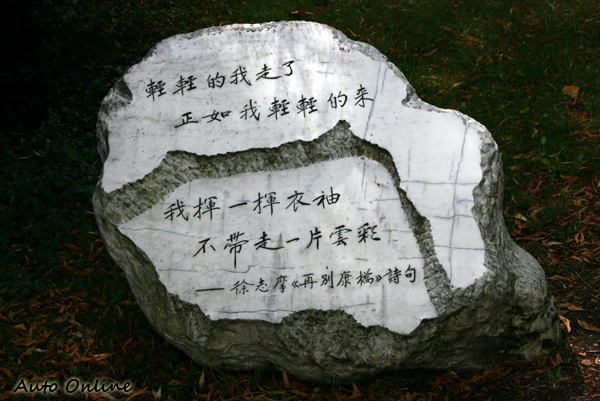 輕輕的我走了
正如我輕輕的来
我揮一揮衣袖
不帶走一片雲彩
——徐志摩《再別康橋》詩句
Auto Online